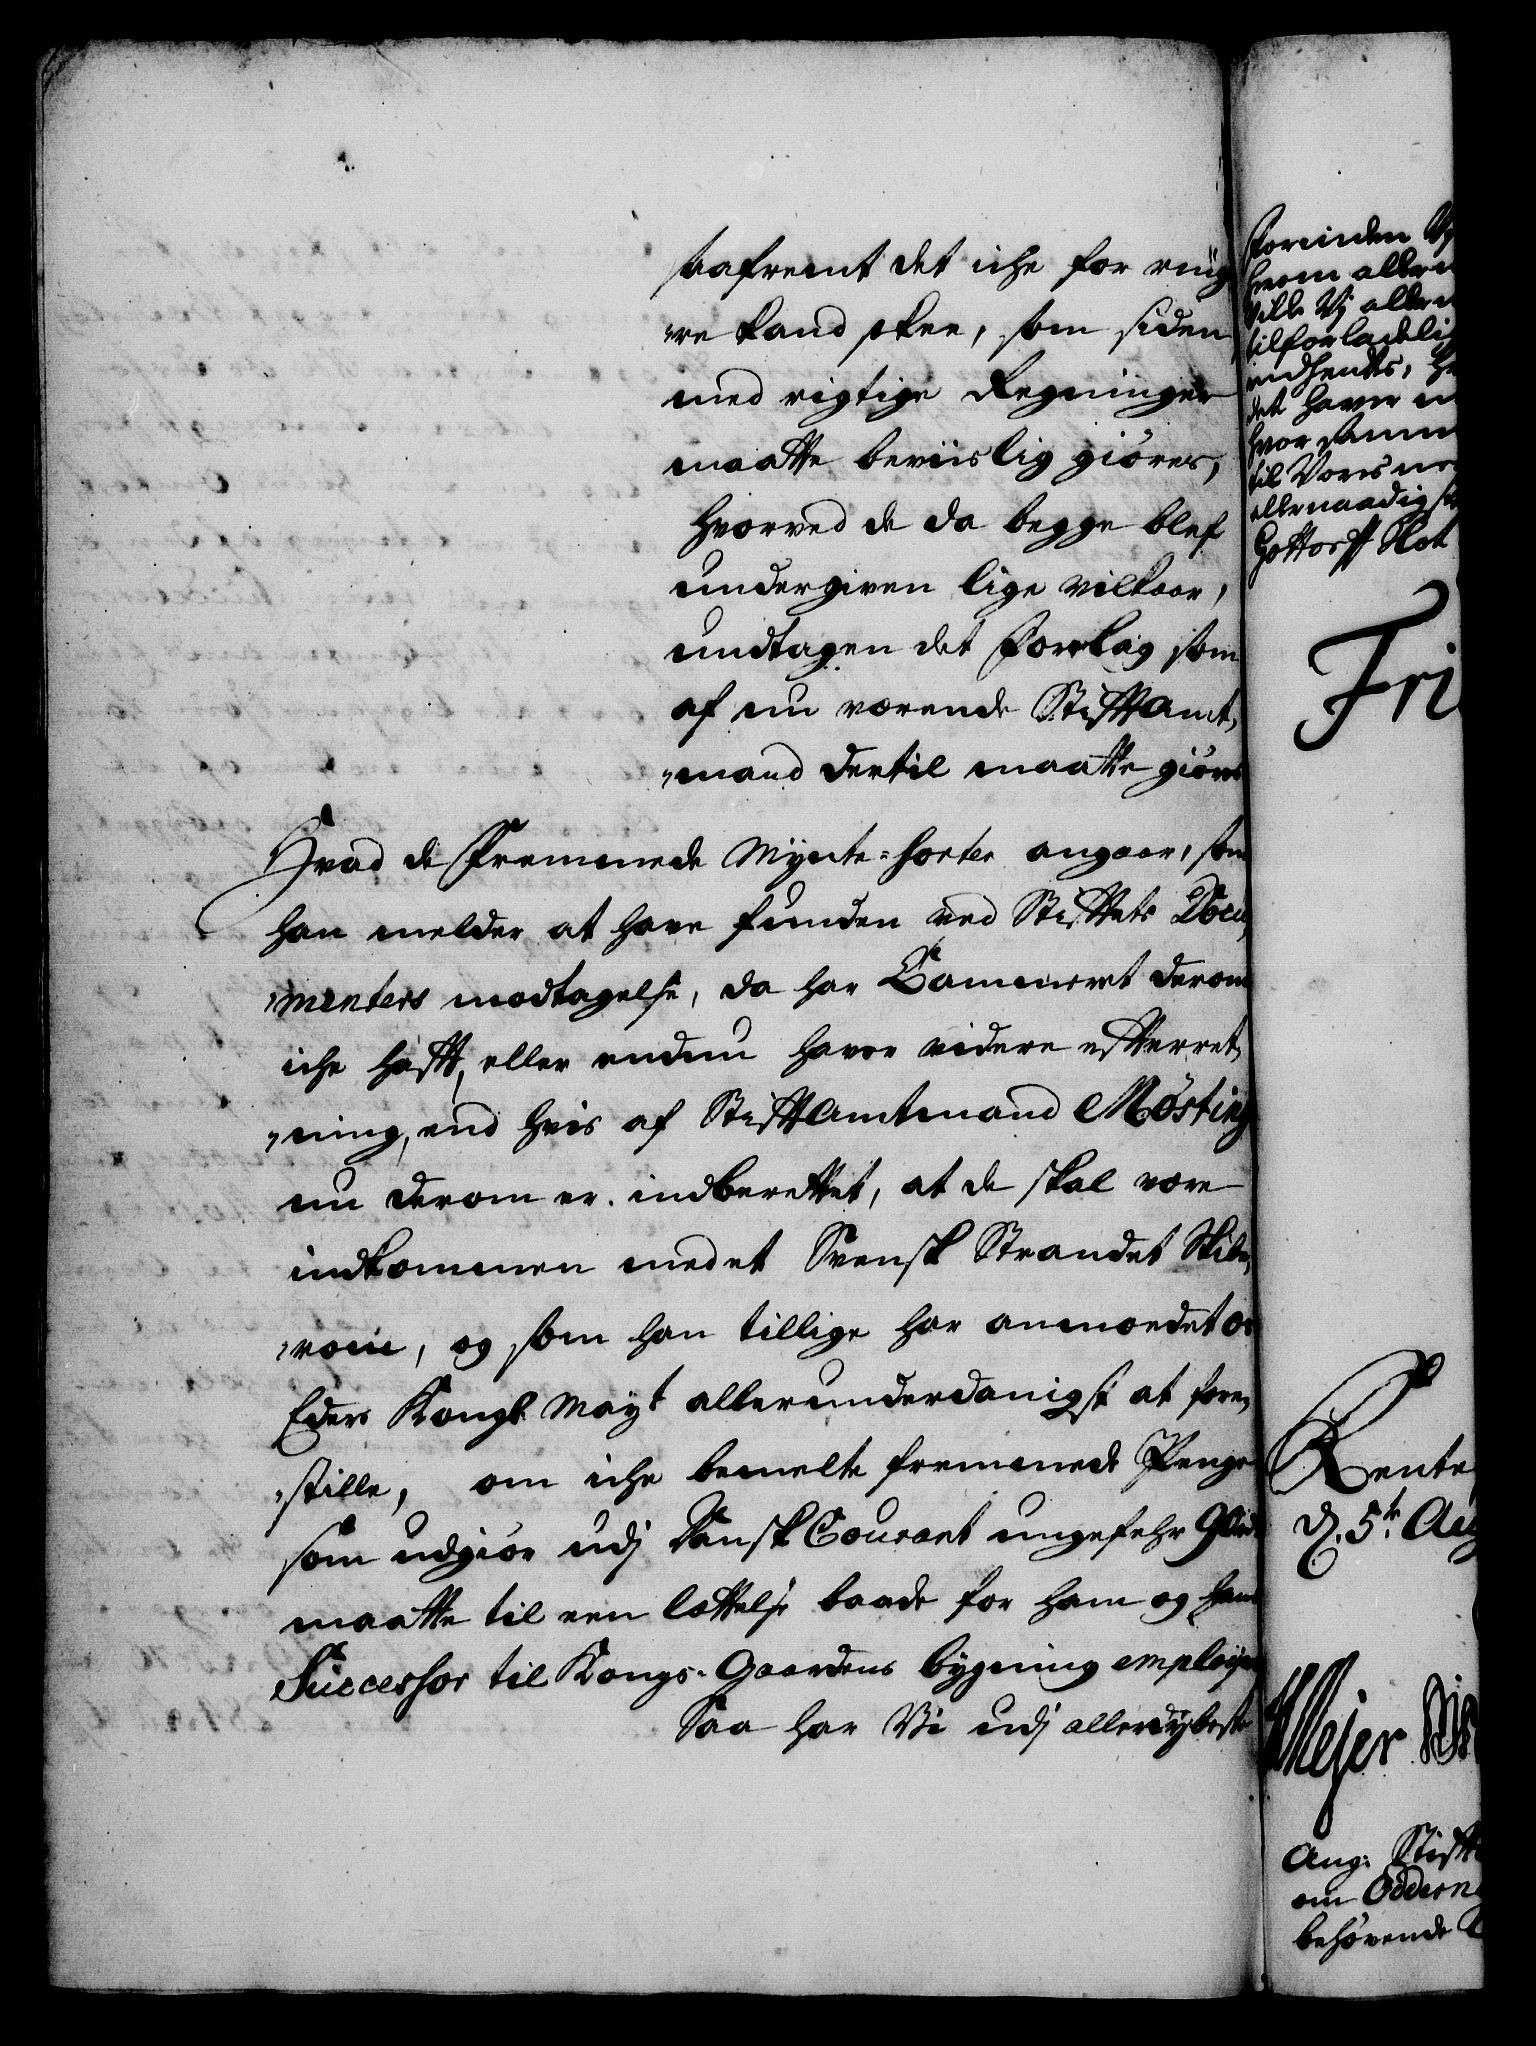 saafremt det iche for ring
"re kand skee, som siden
med rigtige Regninger
maatte beviislig giöres,
hvorved de da begge blef
undergiven lige vilkaar,
undtagen det Forslag som
af nu værende StifftAmt,
"mand dertil maatte giöres
Hvad de Fremmede Mÿnte-sorter angaar, som
han melder at have funden ved Stifftets Docu,
"menters modtagelse, da har Cammeret derom
iche hafft, eller endnu haver videre effterret,
"ning, end hvis af StifftAmtmand Mösting
nu derom er indberettet, at de skal være
indkommen med et Svensk Strandet Skibs,
og som han tillige har anmodet os
Eders Kongl. Mayt allerunderdanigst at fore,
"stille, om iche bemelte fremmede Penge
som udgiör udj Dansk Courant ungefehr
maatte til een lættelse baade for ham og hans
Successor til Kongs-Gaardens bÿgning employe
Saa har Vi udj allerdÿbeste
Forinden
herom aller
Ville Vj aller
tilforladeli
indhentes,
det haver
hvor
til Voris
allernaadigst
Gottorff Slot
Fri
Rente
D. 5te Aug
Mejer
Ang: Stifft
omÖdderne
behövende